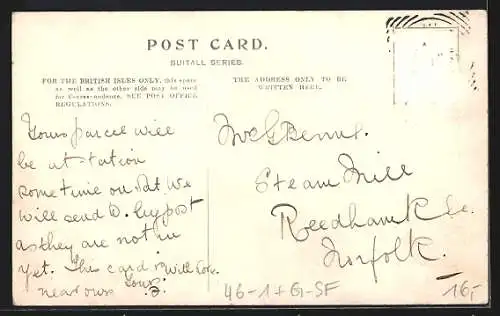 POST CARD.
SUITALL SERIES.
FOR THE BRITISH ISLES ONLY, this space
as well as the other side may be used
for Correspondence. SEE POST OFFICE
REGULATIONS.
THE ADDRESS ONLY TO BE
WRITTEN HERE.
Yours parcel will
be at tation
sometime on Sat. We
will send D. by post
as they are not in
yet. This card will
near ours
Mr G
Steam Mill
Reedham
Norfolk
46-1+G-SF
16,-